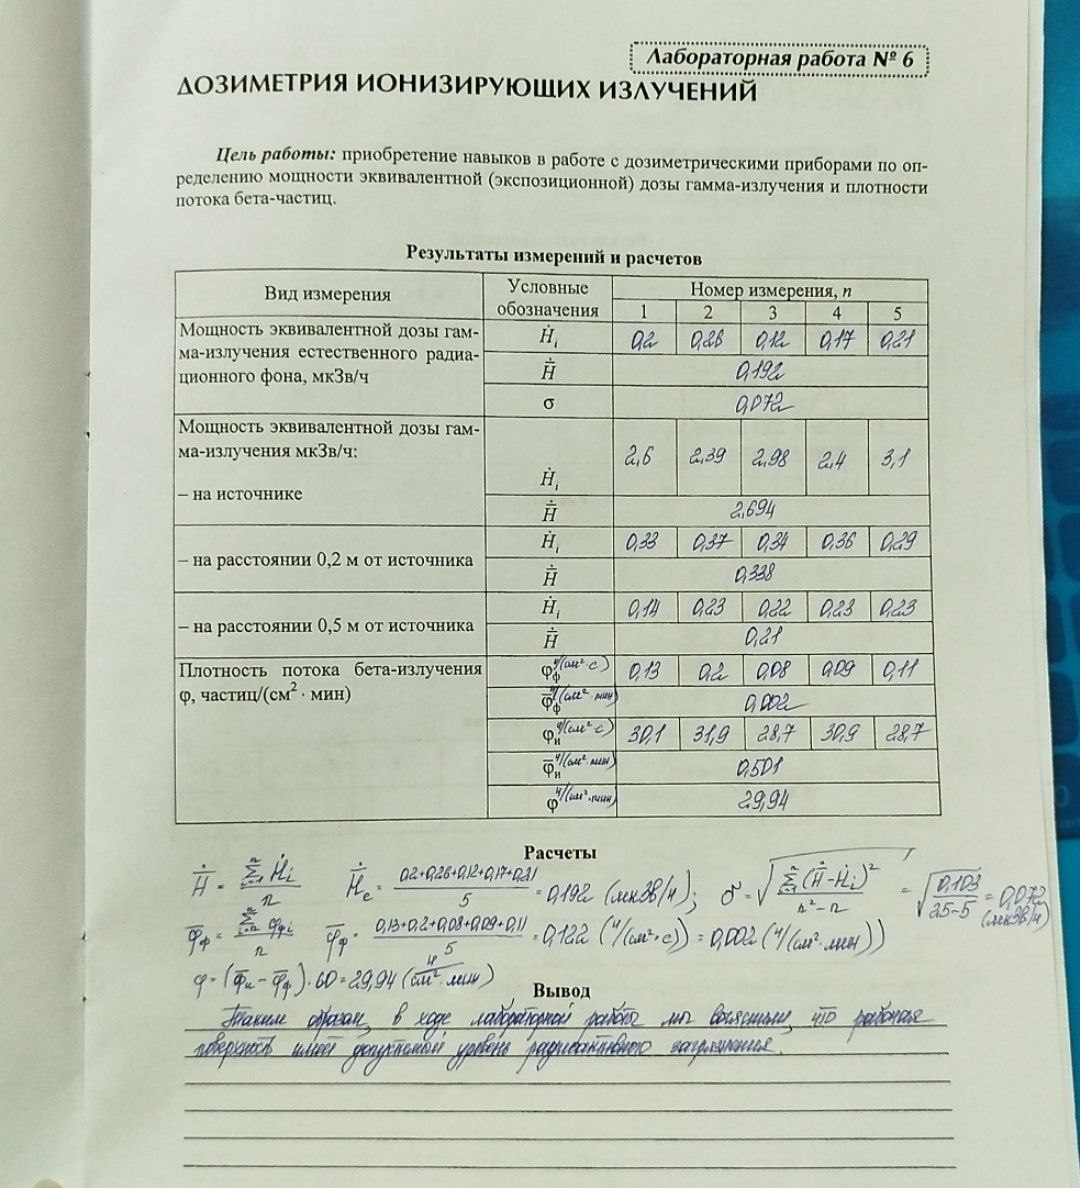 Лабораторная работа № 6
ДОЗИМЕТРИЯ ИОНИЗИРУЮЩИХ ИЗЛУЧЕНИЙ
Цель работы: приобретение навыков в работе с дозиметрическими приборами по оп-
ределению мощности эквивалентной (экспозиционной) дозы гамма-излучения и плотности
потока бета-частиц.
Результаты измерений и расчетов
Вид измерения Условные обозначения Номер измерения, n
1 2 3 4 5
Мощность эквивалентной дозы гам-
ма-излучения естественного радиа-
ционного фона, мкЗв/ч
Ḣᵢ 0,2 0,26 0,12 0,17 0,21
H̄̇ 0,192
σ 0,072
Мощность эквивалентной дозы гам-
ма-излучения мкЗв/ч:
– на источнике
Ḣᵢ 2,6 2,39 2,98 2,4 3,1
H̄̇ 2,694
– на расстоянии 0,2 м от источника
Ḣᵢ 0,33 0,37 0,34 0,36 0,29
H̄̇ 0,338
– на расстоянии 0,5 м от источника
Ḣᵢ 0,14 0,23 0,22 0,23 0,23
H̄̇ 0,21
Плотность потока бета-излучения
φ, частиц/(см² · мин)
φф ч/(см²·с) 0,13 0,2 0,08 0,09 0,11
φ̄ф ч/(см²·мин) 0,002
φи ч/(см²·с) 30,1 31,9 28,7 30,9 28,7
φ̄и ч/(см²·мин) 0,501
φ ч/(см²·мин) 29,94
Расчеты
H̄̇ = Σ Ḣᵢ / n H̄̇с = (0,2+0,26+0,12+0,17+0,21) / 5 = 0,192 (мкЗв/ч); σ = √(Σ (H̄̇ - Ḣᵢ)² / (n² - n)) = √(0,103 / (25-5)) = 0,072 (мкЗв/ч)
φ̄ф = Σ φфi / n φ̄ф = (0,13+0,2+0,08+0,09+0,11) / 5 = 0,122 (ч/(см²·с)) = 0,002 (ч/(см²·мин))
φ = (φ̄и - φ̄ф) · 60 = 29,94 (ч / см²·мин)
Вывод
Таким образом, в ходе лабораторной работы мы выяснили, что рабочая
поверхность имеет допустимый уровень радиоактивного загрязнения.